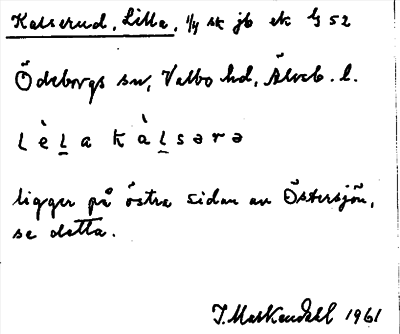 Kalserud, Lilla, 1/4 sk jb ek § 52
Ödeborgs sn, Valbo hd, Älvsb. l.
Lèḻa kàḻsərə
ligger på östra sidan av Östersjön,
se detta.
1961